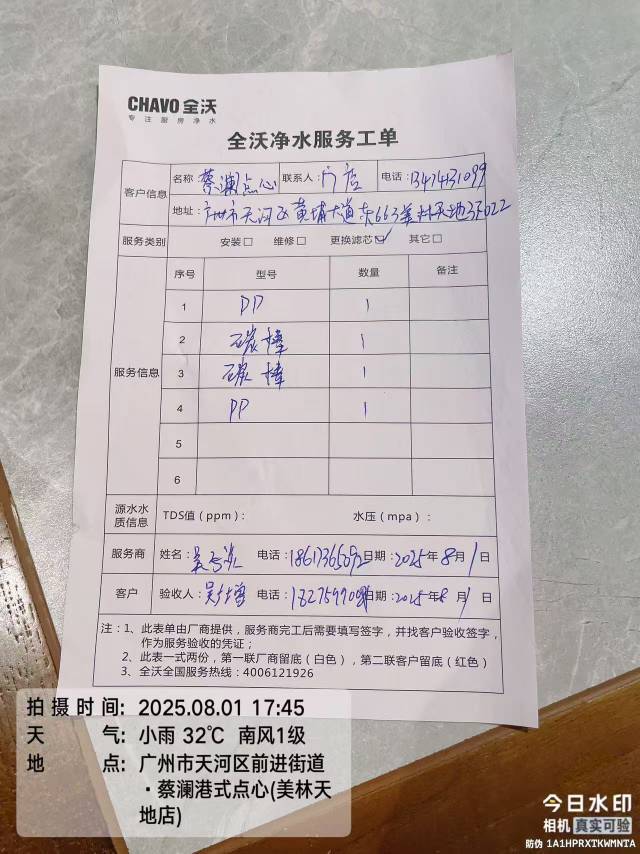 CHAVO 全沃
专注厨房净水
全沃净水服务工单
客户信息 名称 蔡澜点心 联系人: 门店 电话: 13414131099
地址: 广州市天河区黄埔大道东663美林天地3F022
服务类别 安装□ 维修□ 更换滤芯☑ 其它□
服务信息 序号 型号 数量 备注
1 PP 1
2 碳棒 1
3 碳棒 1
4 PP 1
5
6
源水水质信息 TDS值(ppm): 水压(mpa):
服务商 姓名: 电话: 日期: 2025年8月1日
客户 验收人: 电话: 日期: 2025年8月1日
注:1、此表单由厂商提供,服务商完工后需要填写签字,并找客户验收签字,
作为服务验收的凭证;
2、此表一式两份,第一联厂商留底(白色),第二联客户留底(红色)
3、全沃全国服务热线:4006121926
拍摄时间: 2025.08.01 17:45
天气: 小雨 32℃ 南风1级
地点: 广州市天河区前进街道
·蔡澜港式点心(美林天
地店)
今日水印
相机 真实可验
防伪 1A1HPRXTKWMNTA